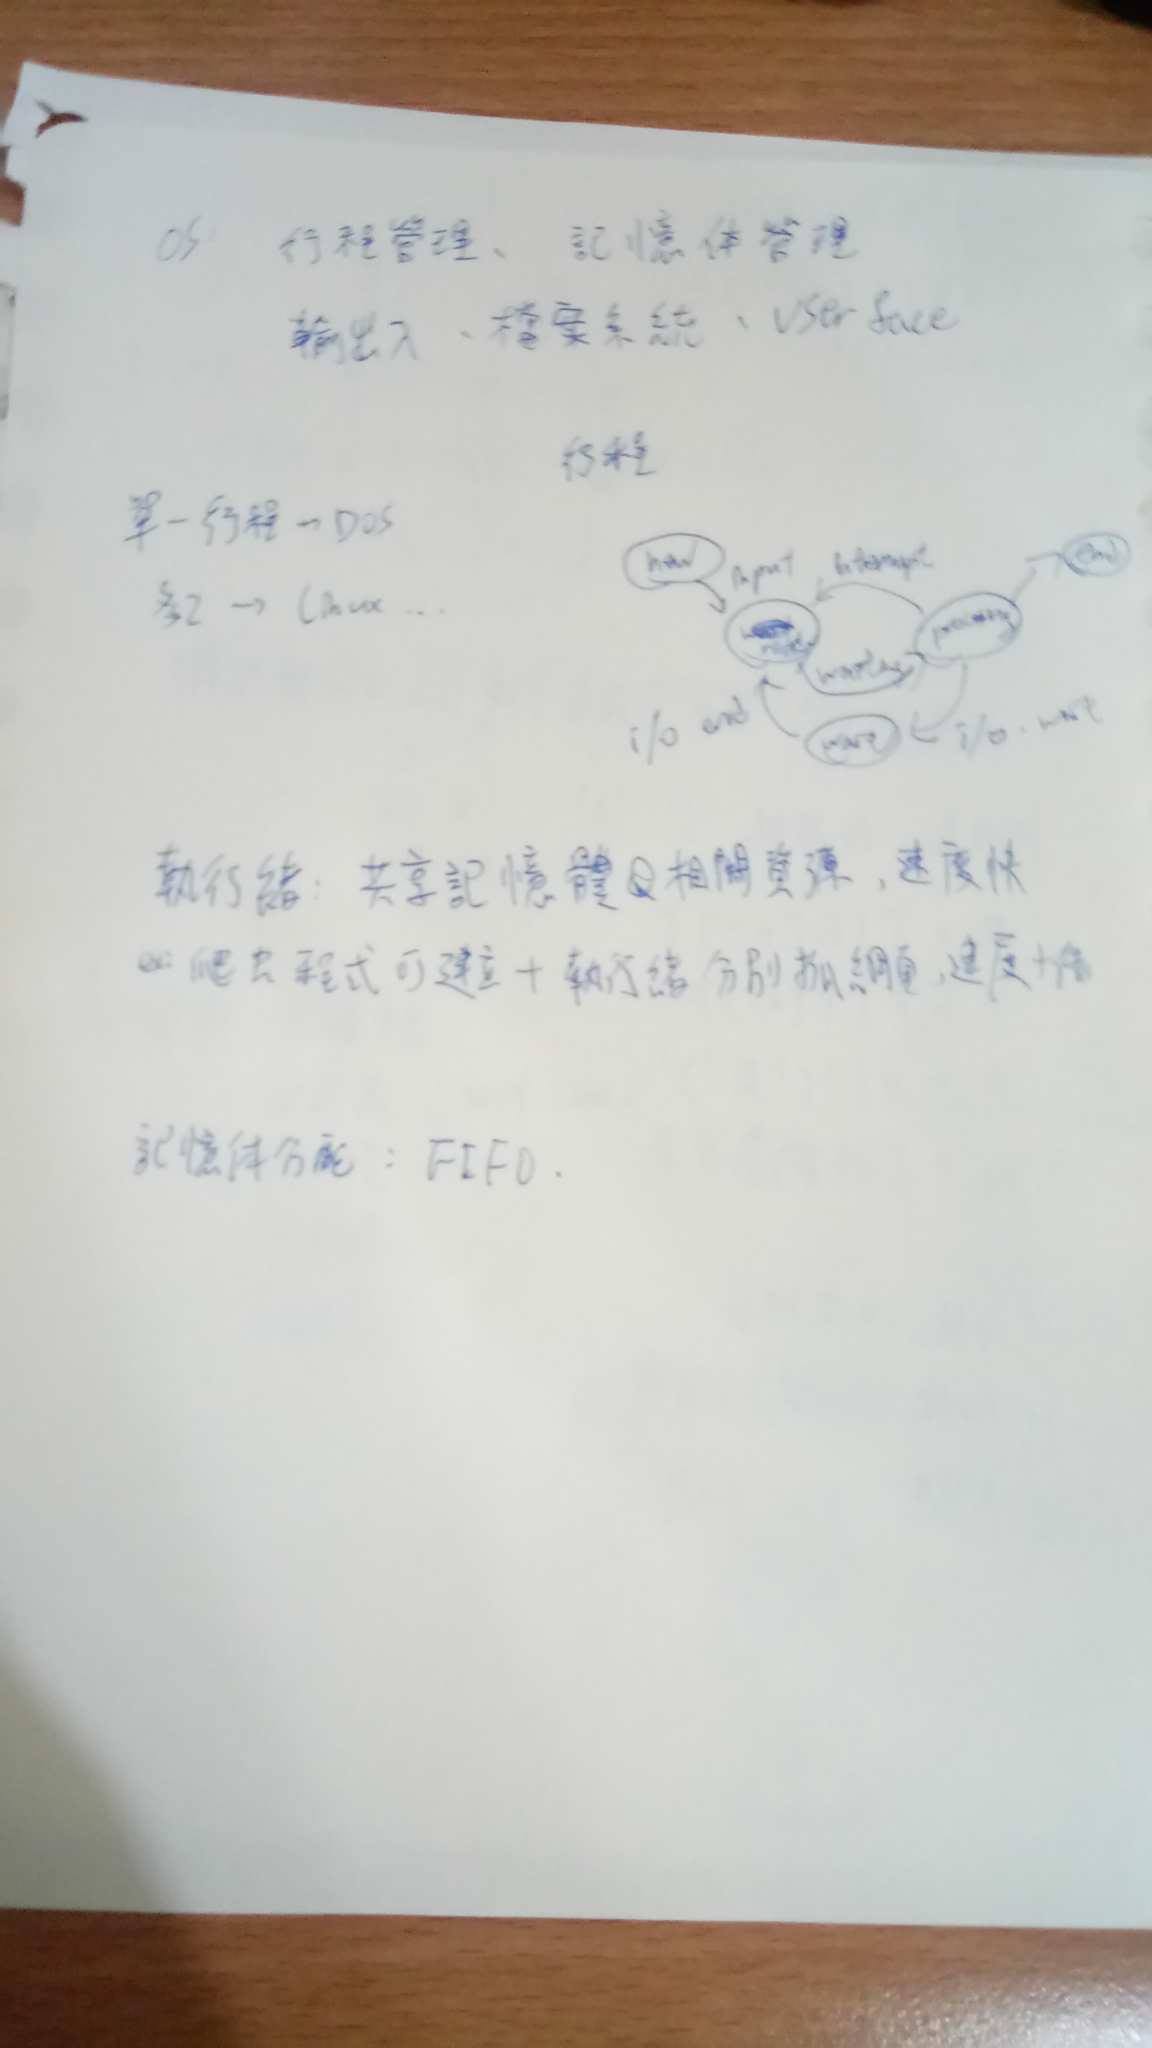 OS 行程管理、 記憶体管理
輸出入、檔案系統、user face
行程
單一行程→DOS
多工→Linux ...
new input interrupt end
ready waiting processing
i/o end wait i/o wait
執行緒：共享記憶體及相關資源，速度快
爬虫程式可建立十執行緒分別抓網頁，速度十倍
記憶体分配：FIFO.